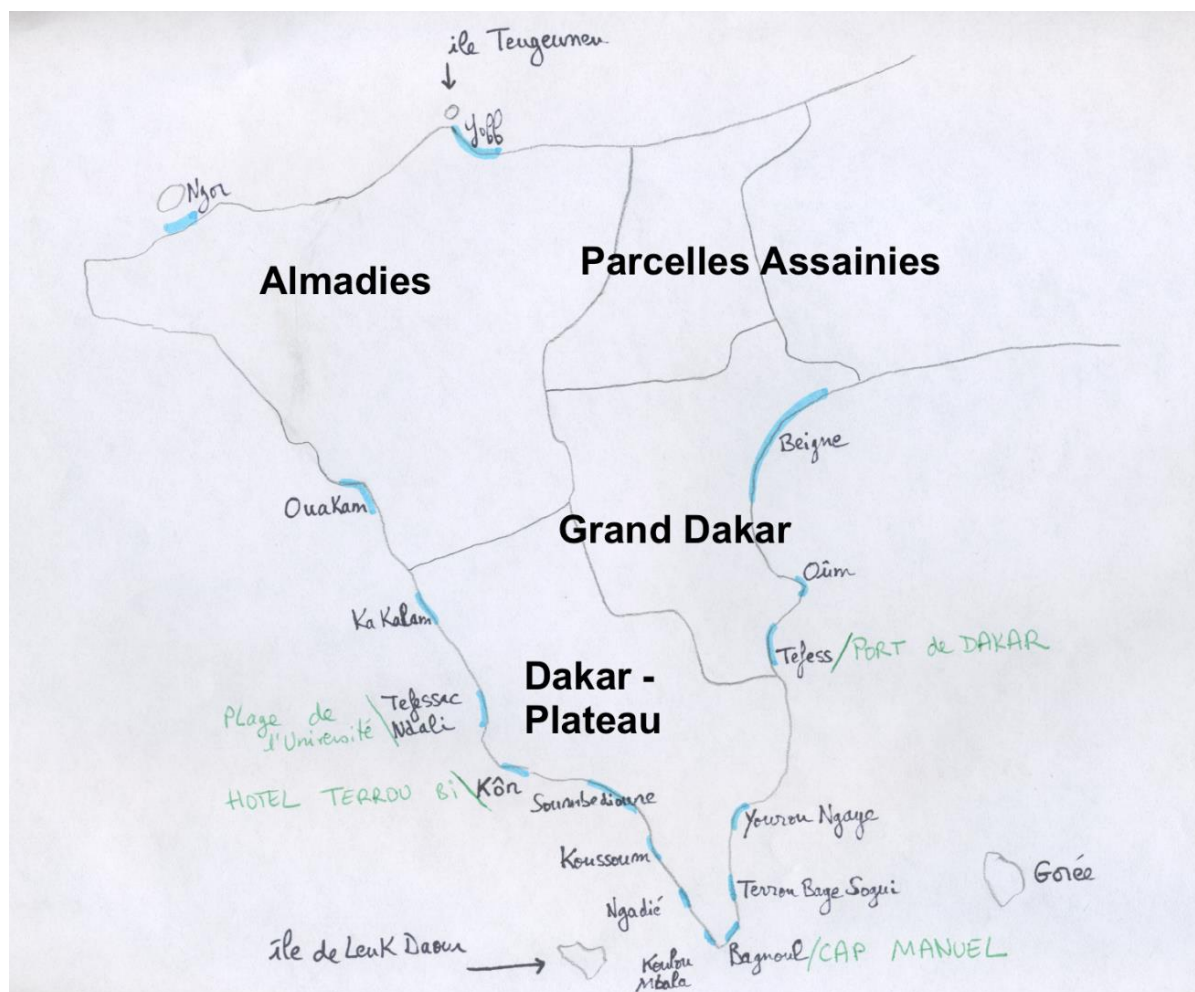 île Teugeuneu
Yoff
Ngor
Almadies
Parcelles Assainies
Beigne
Ouakam
Grand Dakar
Oûm
Ka Kalam
Tefess/PORT de DAKAR
Dakar -
Plateau
Plage de
l'Université
Tefessac
Ndali
HOTEL TERROU Bi
Kôn
Soumbedioune
Yourou Ngaye
Koussoum
Gorée
Terrou Baye Sogui
Ngadié
île de Leuk Daour
Koulou
Mbala
Bagnoul/CAP MANUEL